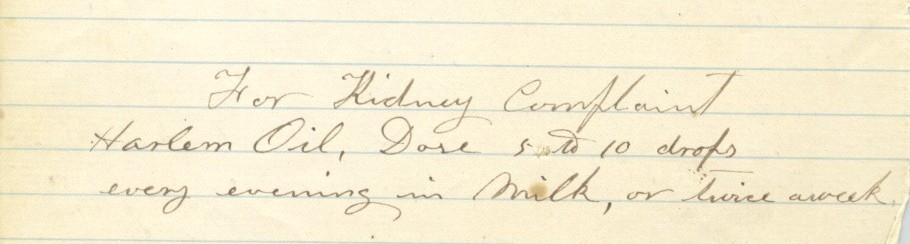 For Kidney Complaint
Harlem Oil, Dose 5 to 10 drops
every evening in Milk, or twice aweek